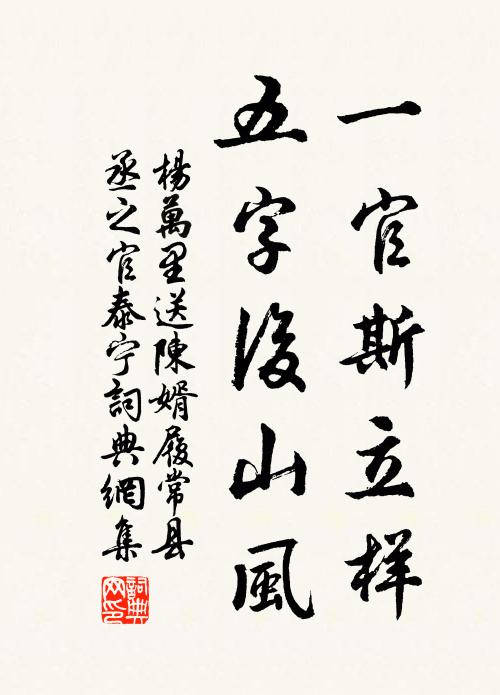 一官斯立样
五字後山風
楊萬里送陳婿履常县
丞之官泰宁詞典網集
詞典
网印